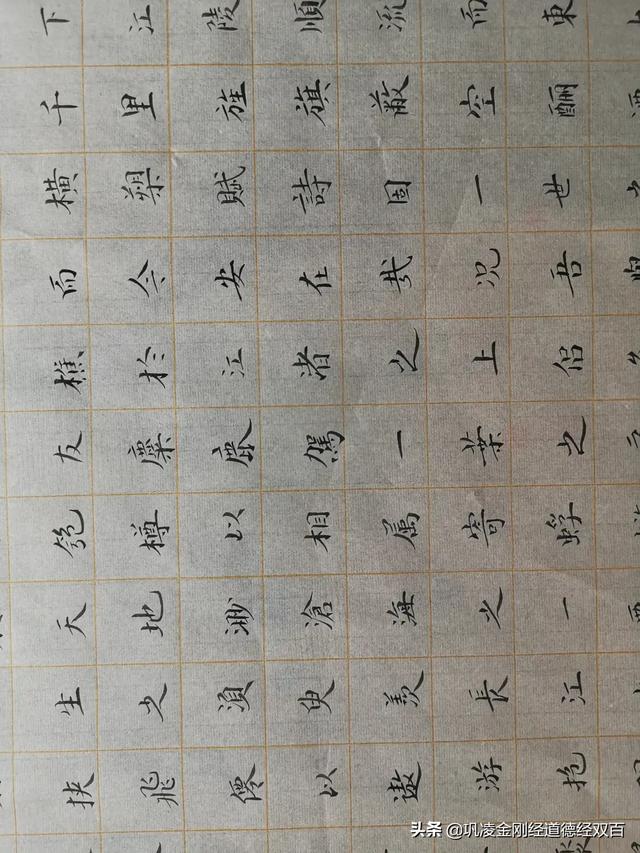 下江陵順流而東
千里旌旗蔽空酾
横槊賦詩固一世
而今安在哉况吾
樵於江渚之上侣
友麋鹿駕一葉之
匏樽以相属寄蜉
天地渺滄海之一
生之須臾羡長江
挟飛僊以遨游抱
头条 @巩凌金刚经道德经双百